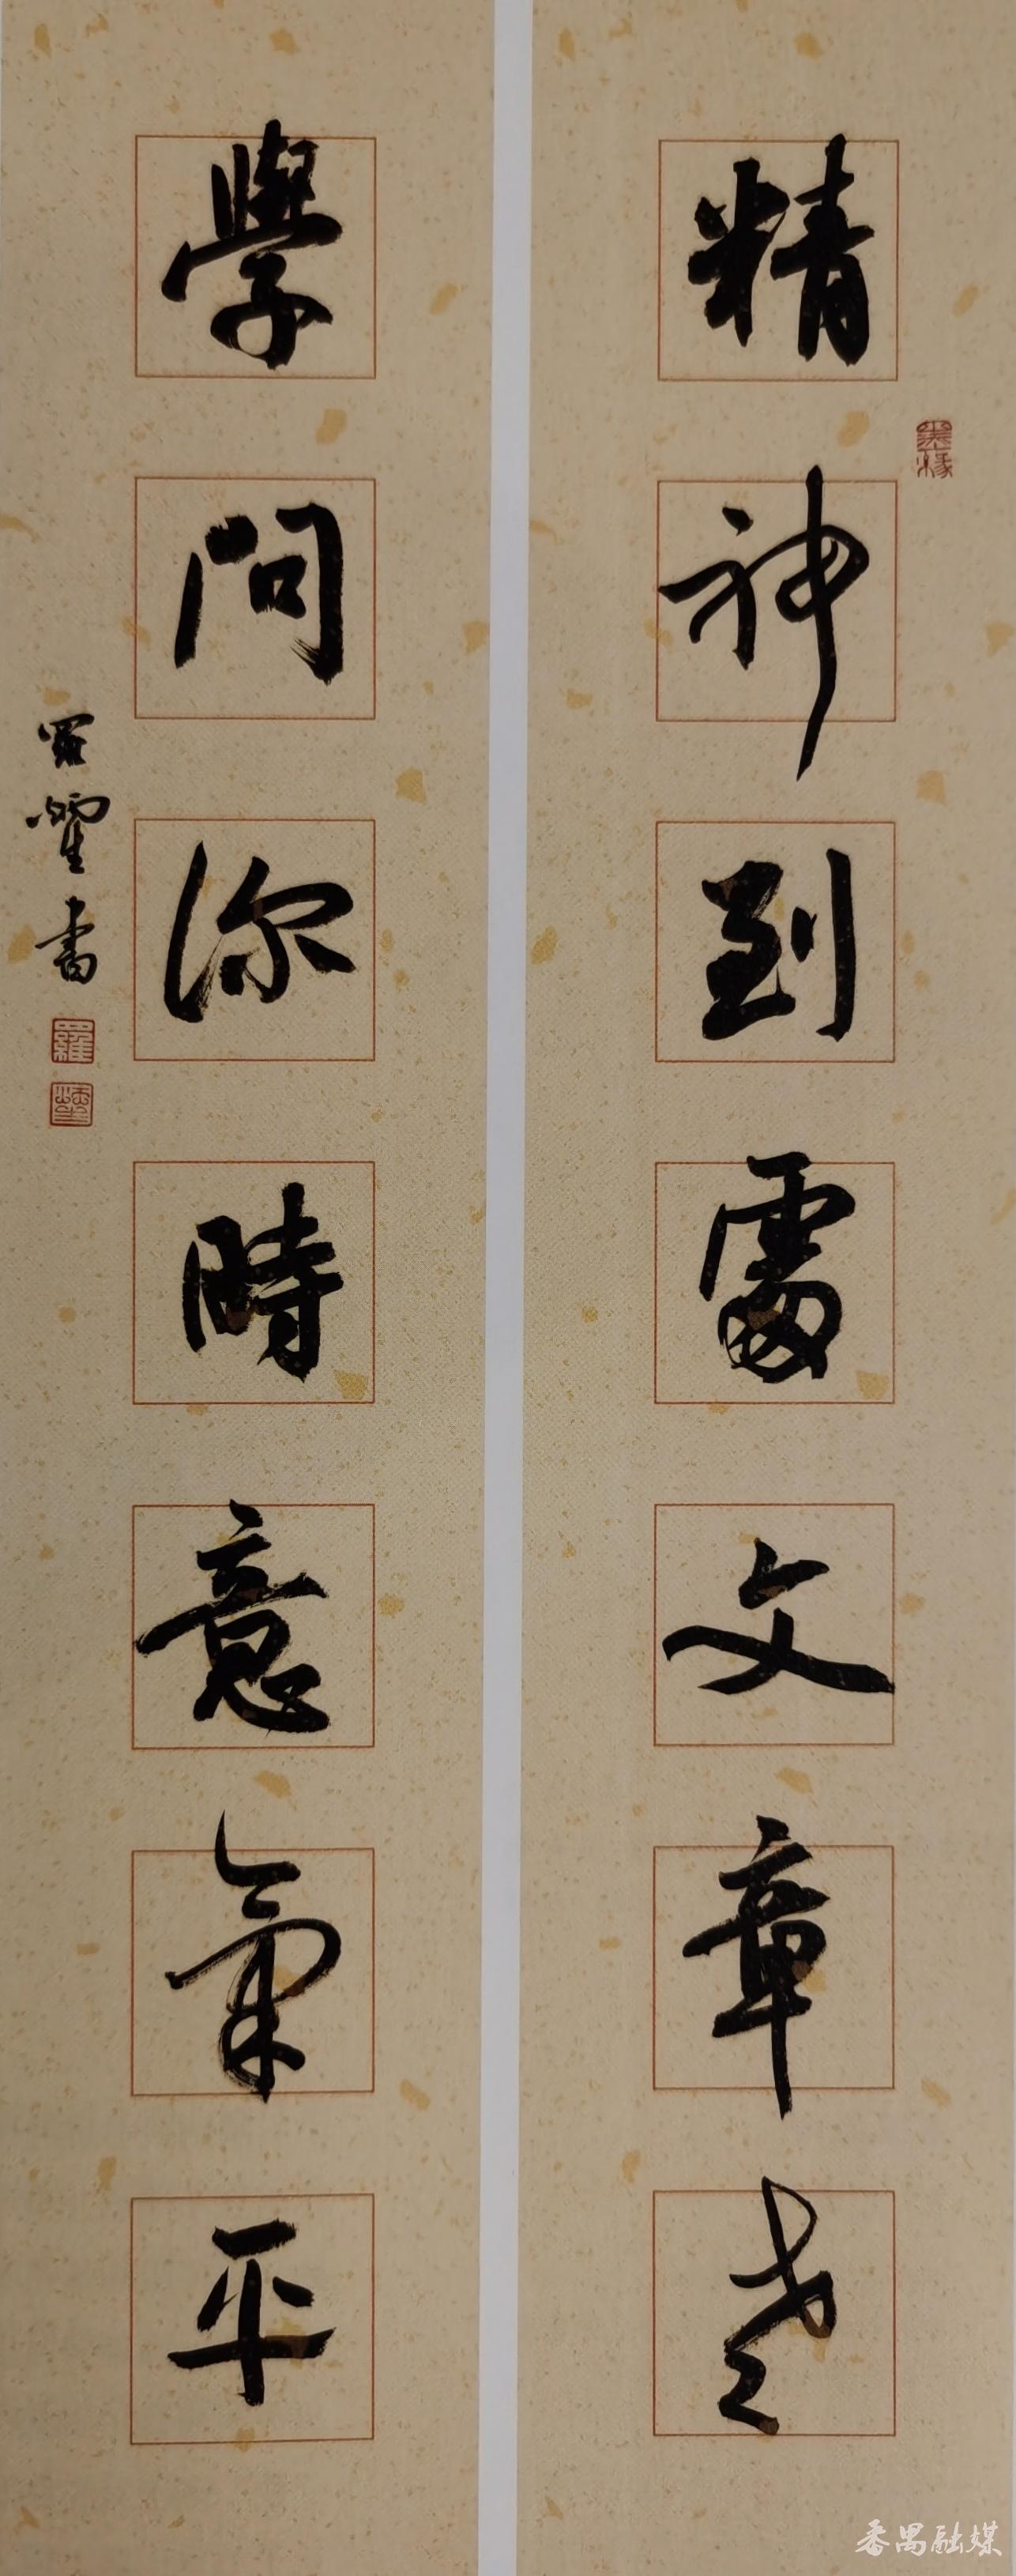 精神到處文章老
墨緣
學問深時意氣平
羅 書
羅
番禺融媒